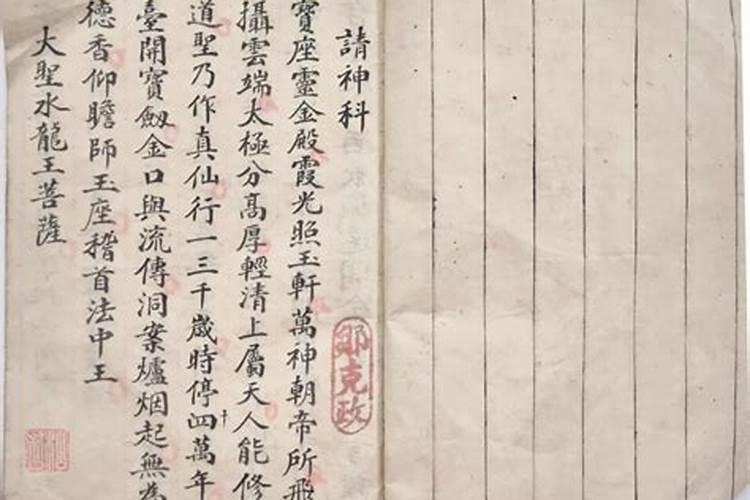 請神科
鄒克政
寶座靈金殿霞光照玉軒萬神朝帝所飛
攝雲端太極分高厚輕清上屬天人能修
道聖乃作真仙行一三千歲時停四十萬年
臺開寶劔金口與流傳洞案爐烟起無為
德香仰瞻師玉座稽首法中王
大聖水龍王菩薩